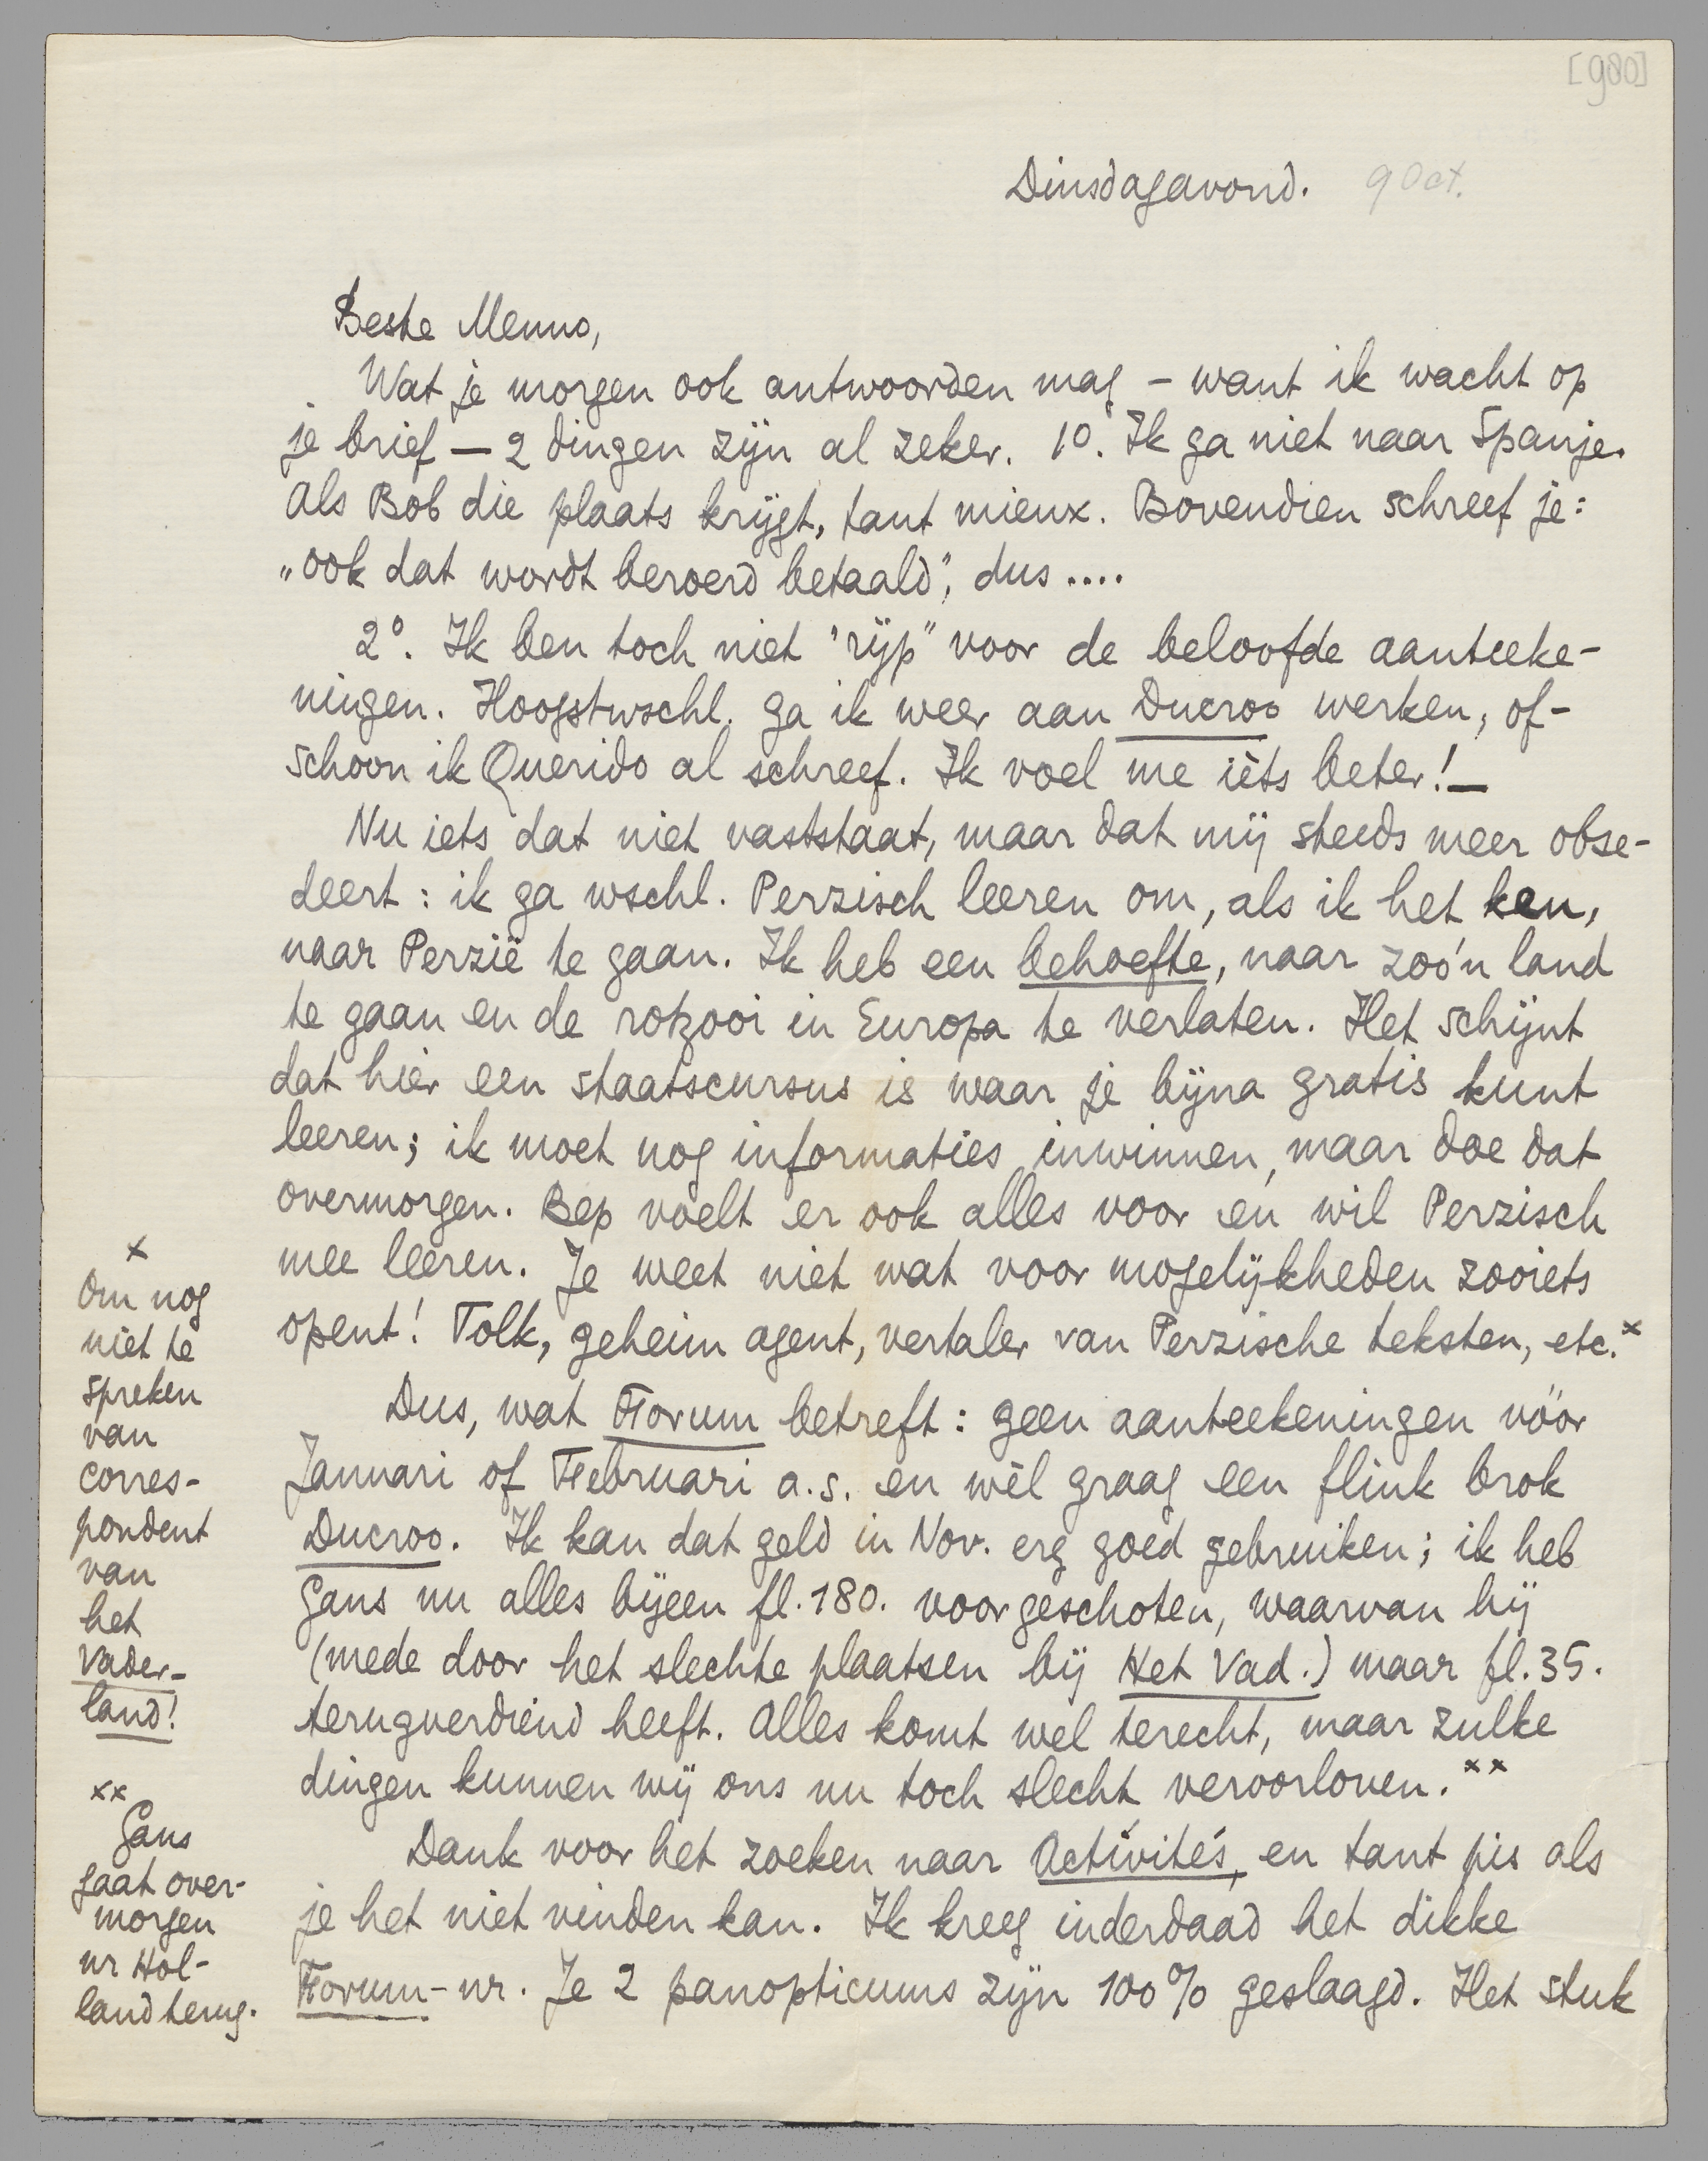 [980]
Dinsdagavond. 9 Oct.
Beste Menno,
Wat je morgen ook antwoorden mag – want ik wacht op
je brief – 2 dingen zijn al zeker. 1º. Ik ga niet naar Spanje.
Als Bob die plaats krijgt, tant mieux. Bovendien schreef je:
„ook dat wordt beroerd betaald”, dus ....
2º. Ik ben toch niet "rijp" voor de beloofde aanteeke-
ningen. Hoogstwschl. ga ik weer aan Ducroo werken, of-
schoon ik Querido al schreef. Ik voel me ièts beter! –
Nu iets dat niet vaststaat, maar dat mij steeds meer obse-
deert: ik ga wschl. Perzisch leeren om, als ik het ken,
naar Perzië te gaan. Ik heb een behoefte, naar zoo'n land
te gaan en de rotzooi in Europa te verlaten. Het schijnt
dat hier een staatscursus is waar je bijna gratis kunt
leeren; ik moet nog informaties inwinnen, maar doe dat
overmorgen. Bep voelt er ook alles voor en wil Perzisch
mee leeren. Je weet niet wat voor mogelijkheden zooiets
opent! Tolk, geheim agent, vertaler van Perzische teksten, etc.x
Dus, wat Forum betreft: geen aanteekeningen vóór
Januari of Februari a.s. en wèl graag een flink brok
Ducroo. Ik kan dat geld in Nov. erg goed gebruiken; ik heb
Gans nu alles bijeen fl. 180. voorgeschoten, waarvan hij
(mede door het slechte plaatsen bij Het Vad.) maar fl. 35.
terugverdiend heeft. Alles komt wel terecht, maar zulke
dingen kunnen wij ons nu toch slecht veroorloven.xx
Dank voor het zoeken naar Activités, en tant pis als
je het niet vinden kan. Ik kreeg inderdaad het dikke
Forum-nr. Je 2 panopticums zijn 100% geslaagd. Het stuk
x
Om nog
niet te
spreken
van
corres-
pondent
van
het
Vader-
land!
xx
Gans
gaat over-
morgen
nr Hol-
land terug.